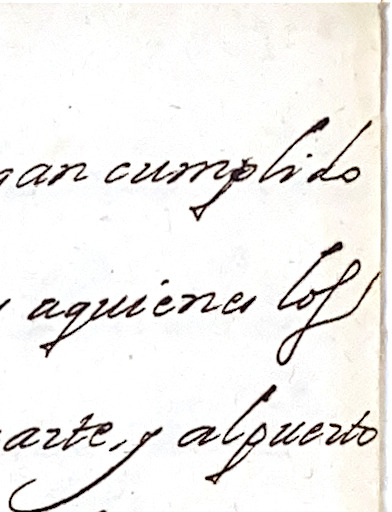 gan cumplido
aquienes los
arte, y alpuerto